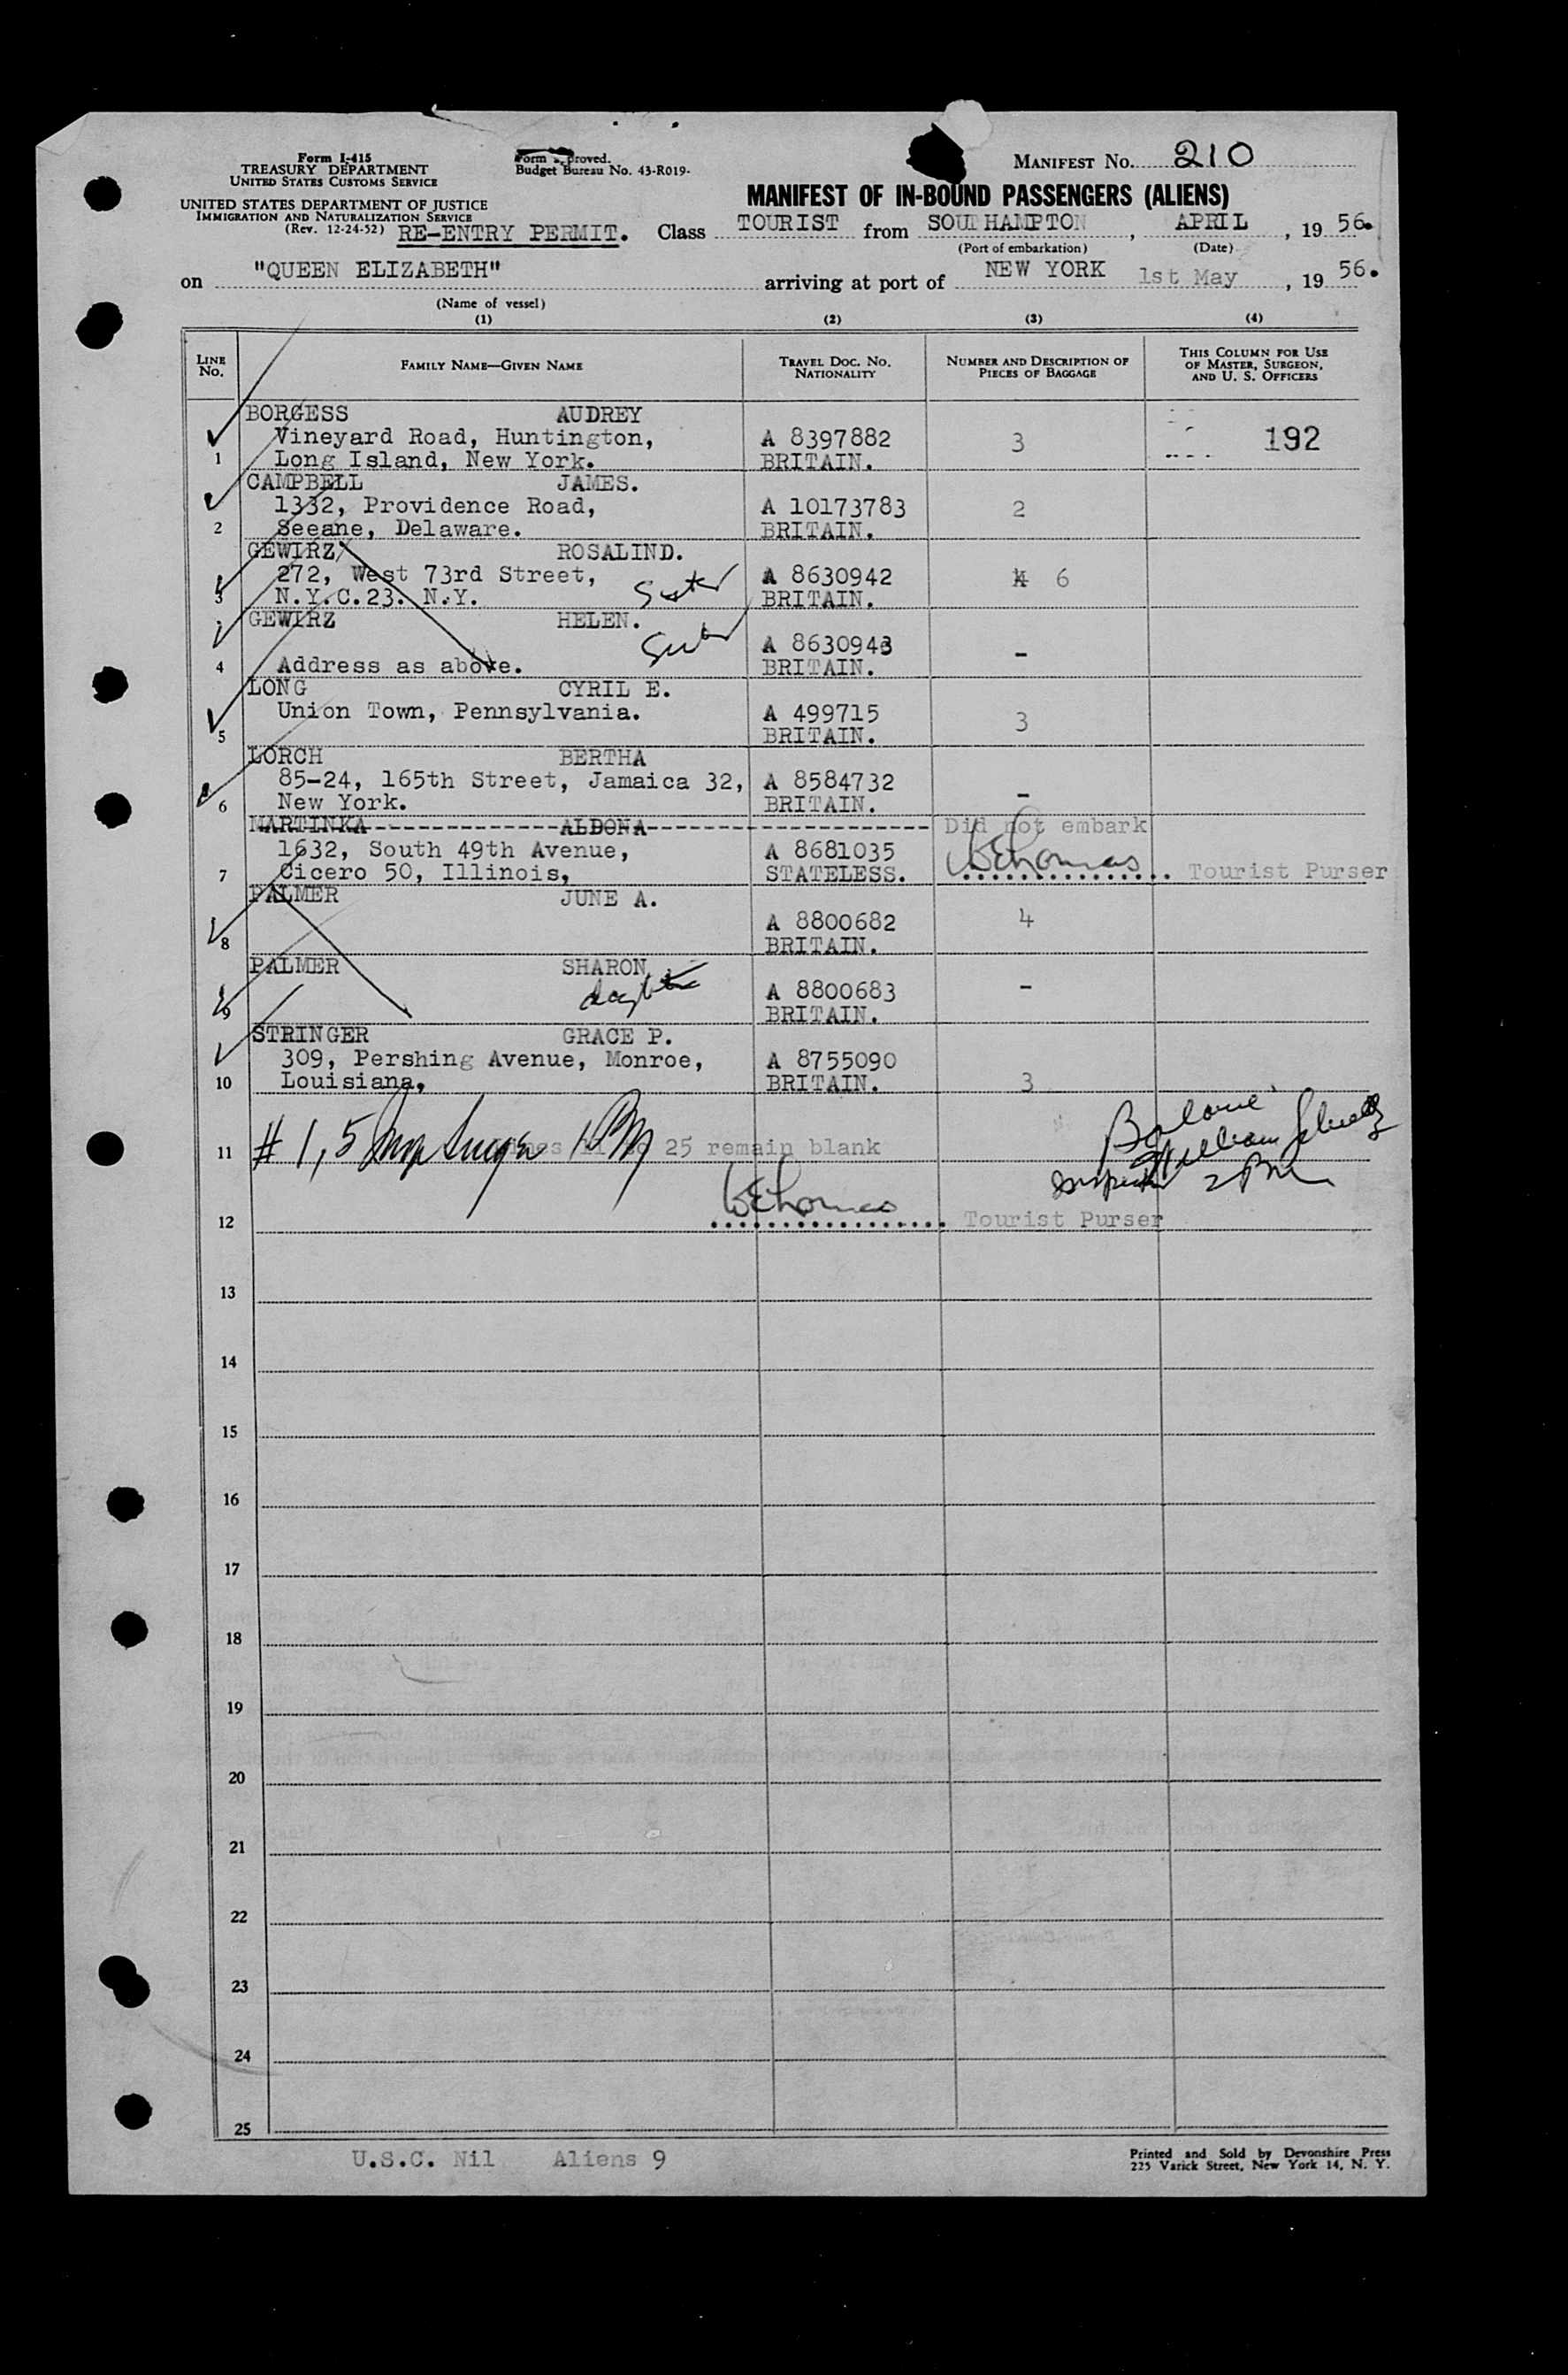 Form I-415
TREASURY DEPARTMENT
UNITED STATES CUSTOMS SERVICE
UNITED STATES DEPARTMENT OF JUSTICE
IMMIGRATION AND NATURALIZATION SERVICE
(Rev. 12-24-52) RE-ENTRY PERMIT.
Form Approved.
Budget Bureau No. 43-R019-
MANIFEST No. 210
MANIFEST OF IN-BOUND PASSENGERS (ALIENS)
Class TOURIST from SOUTHAMPTON, APRIL, 19 56.
(Port of embarkation) (Date)
on "QUEEN ELIZABETH" arriving at port of NEW YORK 1st May, 19 56.
(Name of vessel)
(1) (2) (3) (4)
LINE No. FAMILY NAME—GIVEN NAME TRAVEL DOC. No. NATIONALITY NUMBER AND DESCRIPTION OF PIECES OF BAGGAGE THIS COLUMN FOR USE OF MASTER, SURGEON, AND U. S. OFFICERS
BORGESS AUDREY
Vineyard Road, Huntington, A 8397882 3 192
1 Long Island, New York. BRITAIN.
CAMPBELL JAMES.
1332, Providence Road, A 10173783 2
2 Seeane, Delaware. BRITAIN.
GEWIRZ ROSALIND.
272, West 73rd Street, Sister A 8630942 4 6
3 N.Y.C.23. N.Y. BRITAIN.
GEWIRZ HELEN.
Sister A 8630943 -
4 Address as above. BRITAIN.
LONG CYRIL E.
Union Town, Pennsylvania. A 499715 3
5 BRITAIN.
LORCH BERTHA
85-24, 165th Street, Jamaica 32, A 8584732 -
6 New York. BRITAIN.
MARTINKA ALDONA Did not embark
1632, South 49th Avenue, A 8681035 WEThomas
7 Cicero 50, Illinois, STATELESS. Tourist Purser
PALMER JUNE A.
A 8800682 4
8 BRITAIN.
PALMER SHARON
daughter A 8800683 -
9 BRITAIN.
STRINGER GRACE P.
309, Pershing Avenue, Monroe, A 8755090
10 Louisiana, BRITAIN. 3
11 # 1,5 1PM 25 remain blank
Balance William
Inspector 2PM
WEThomas
12 Tourist Purser
13
14
15
16
17
18
19
20
21
22
23
24
25
U.S.C. Nil Aliens 9
Printed and Sold by Devonshire Press
225 Varick Street, New York 14, N. Y.